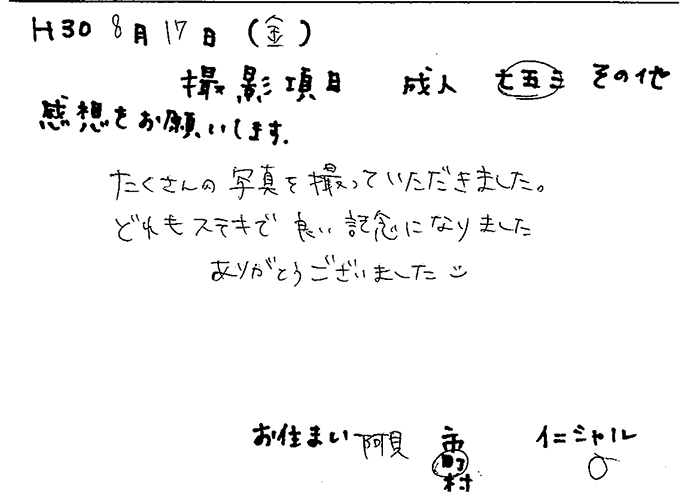 H30 8月17日(金)
撮影項目 成人 七五三 その他
感想をお願いします.
たくさんの写真を撮っていただきました。
どれもステキで良い記念になりました
ありがとうございました
お住まい 阿見 市 町 村 イニシャル O